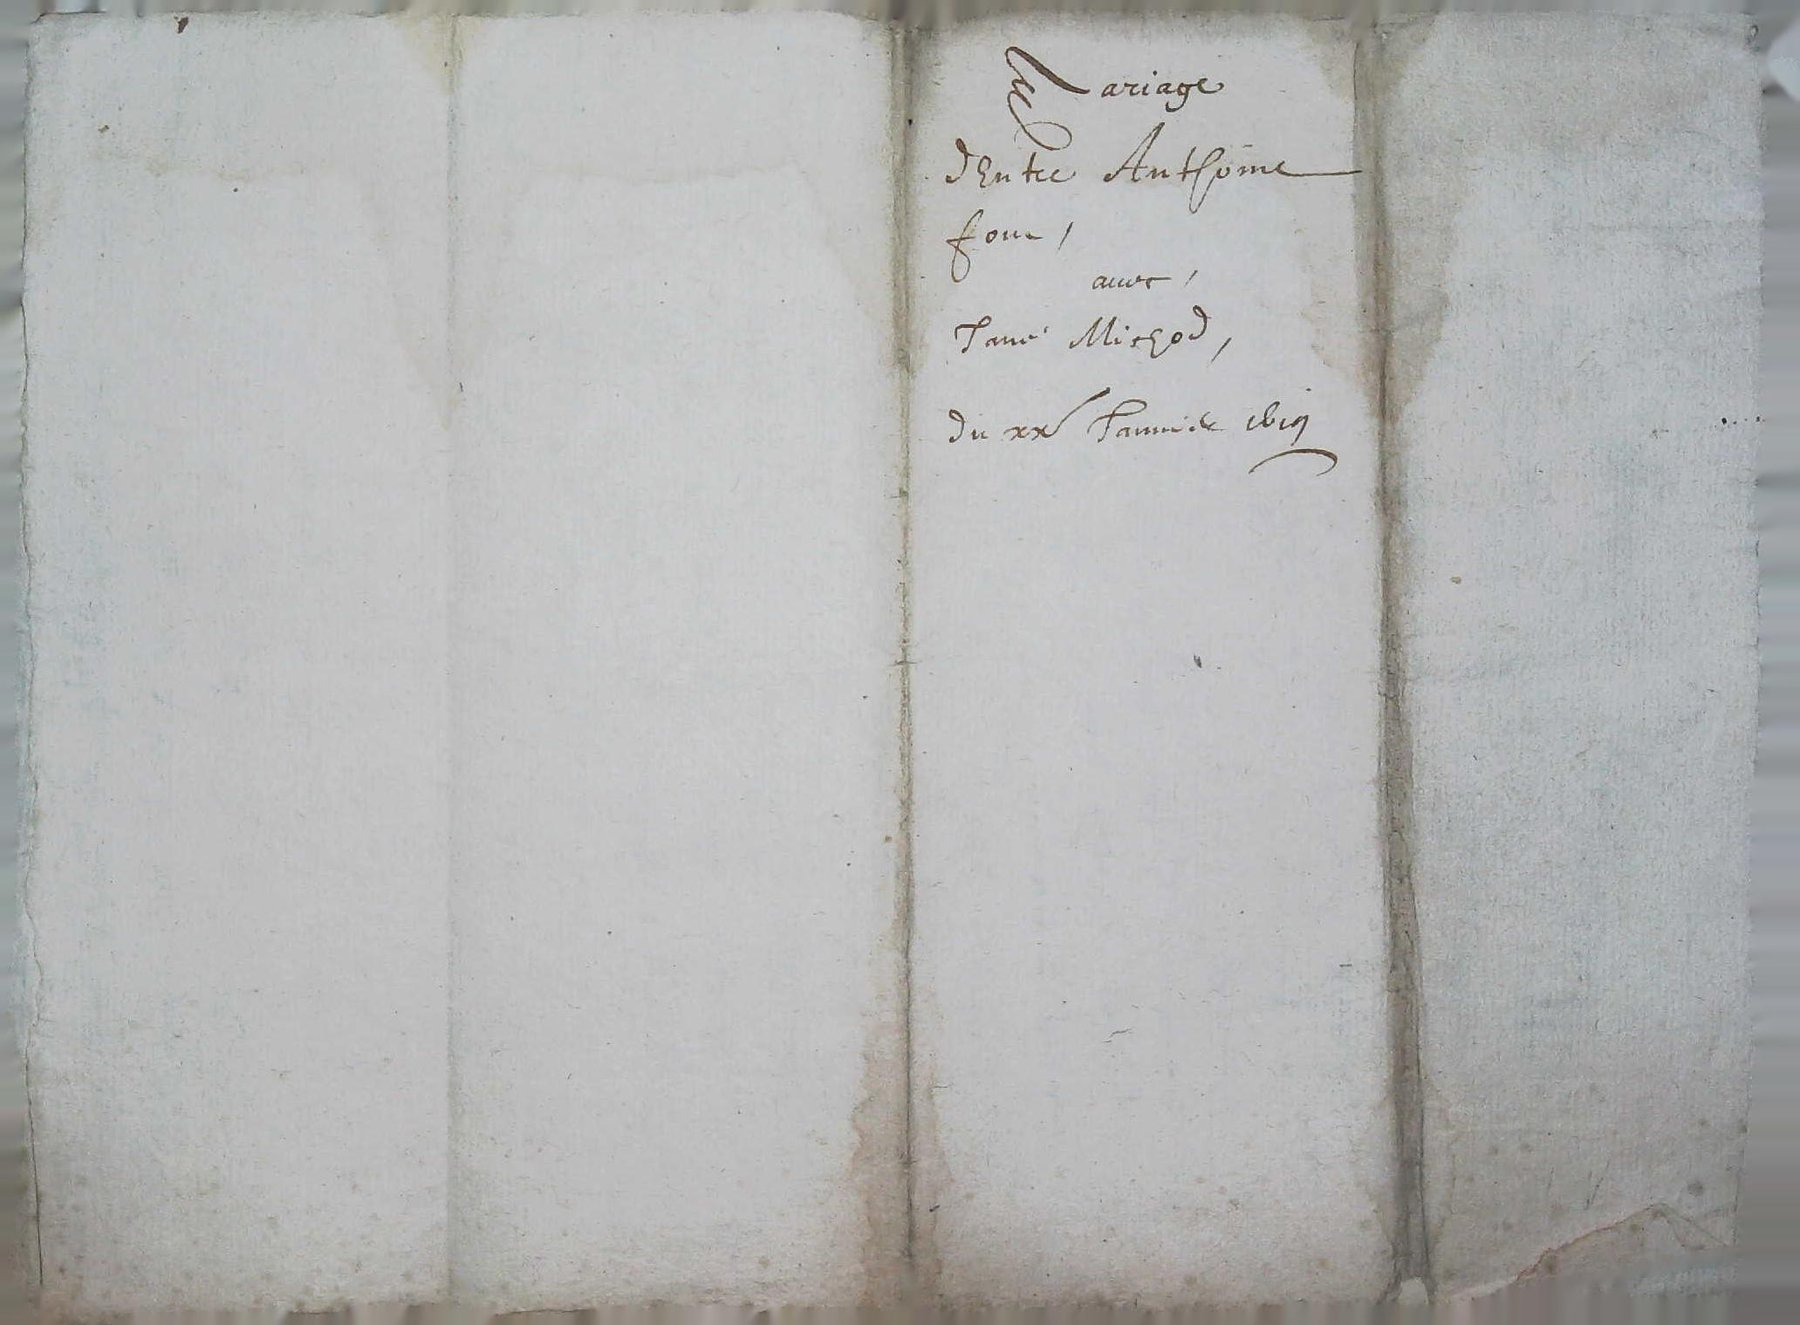 Mariage
dEntre Anthoine
four,
auec,
Jane Michod,
du xxe Januier 1619